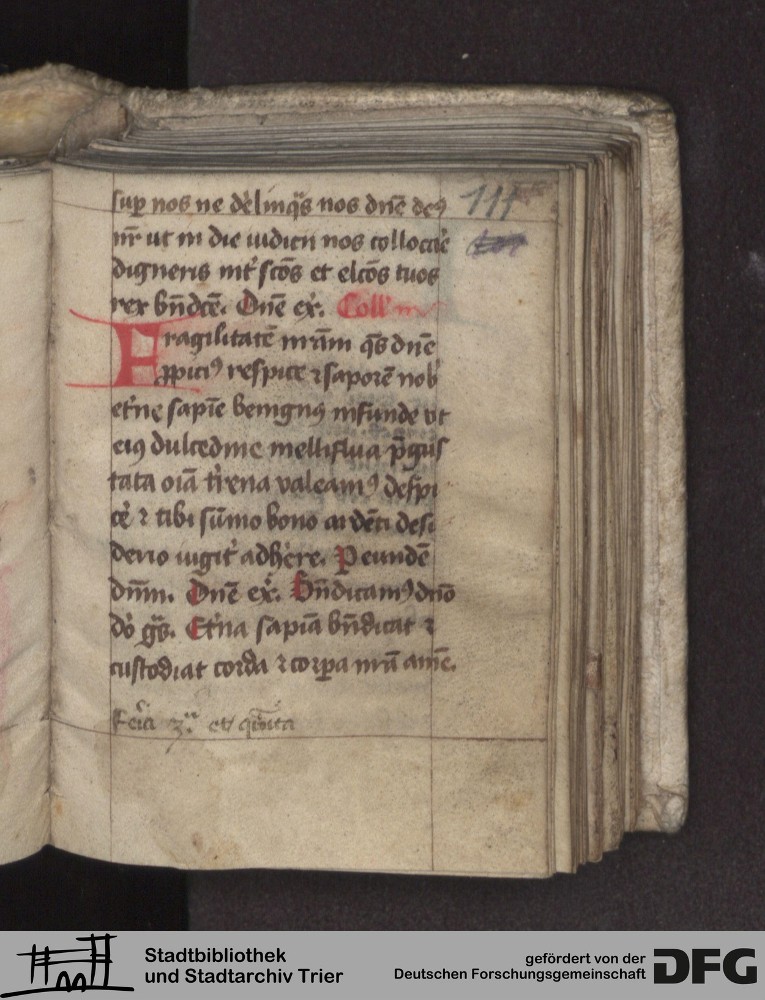 sup nos ne delinqͣs nos dnē deꝰ
nr̄ ut in die iudicii nos collocar̄e
digneris int̄ scōs et elc̄os tuos
rex bn̄dcē. Dn̄e ex̄. Coll'
Fragilitatē nr̄am qs̄ dn̄e
ꝓpiciꝰ respice ⁊ saporē nob̄
et̄ne sapīe benignꝰ infunde vt
eiꝰ dulcedine melliflua p̄gus
tata oīa t̄rena valeamꝰ despi
cē ⁊ tibi sūmo bono ardēti desi
derio iugit̄ adhēre. P eundē
dnm̄. Dn̄e ex̄. Bn̄dicamꝰ dnō
dō gͣs. Et̄na sapīa bn̄dicat ⁊
custodiat corda ⁊ corpa nr̄a amē.
Feria 3ᵃ et quīta
111
Stadtbibliothek
und Stadtarchiv Trier
gefördert von der
Deutschen Forschungsgemeinschaft
DFG